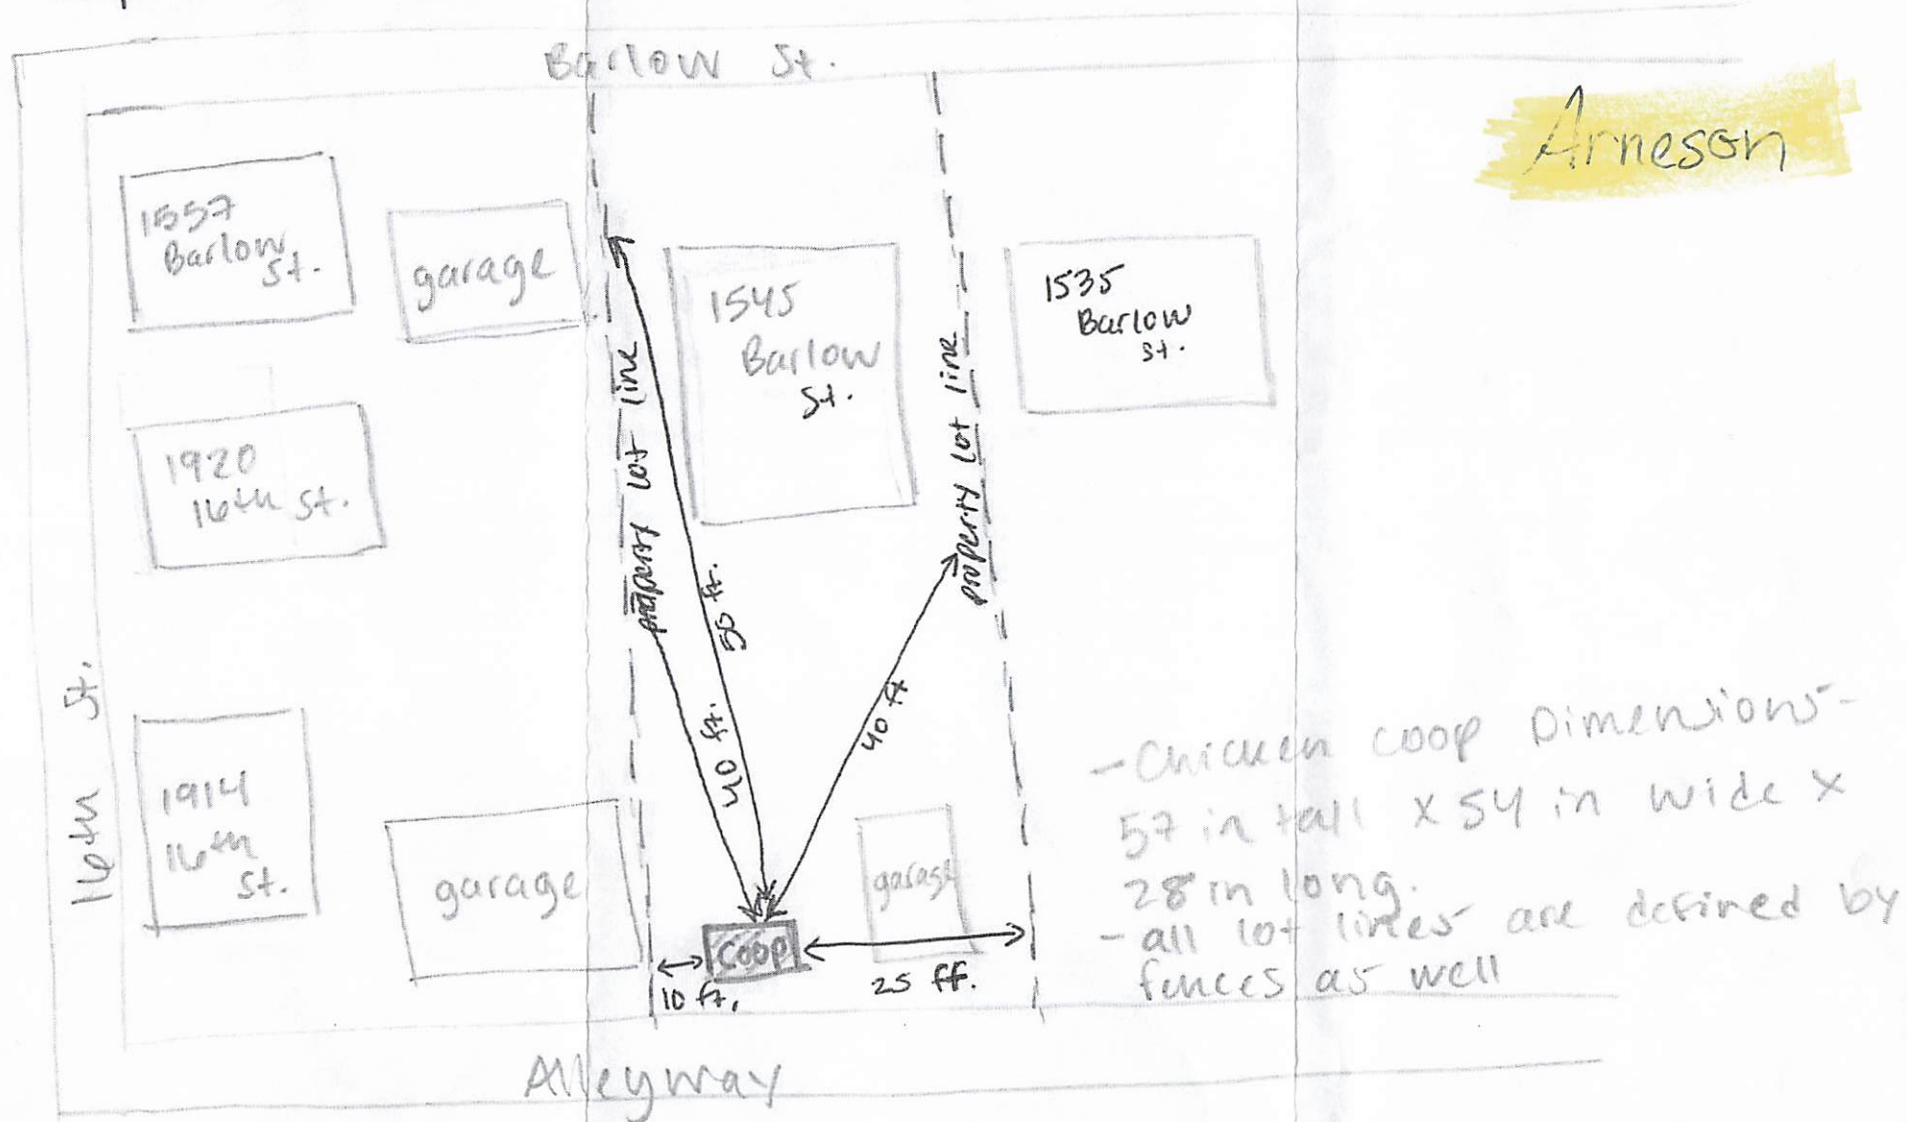 Barlow St.
Arneson
1557
Barlow
St.
garage
1545
Barlow
St.
1535
Barlow
St.
property lot line
property lot line
1920
16th St.
55 ft.
40 ft.
40 ft
16th St.
1914
16th
St.
garage
garage
coop
10 ft.
25 ff.
- Chicken coop Dimensions -
57 in tall x 54 in wide x
28 in long.
- all lot lines are defined by
fences as well
Alleyway